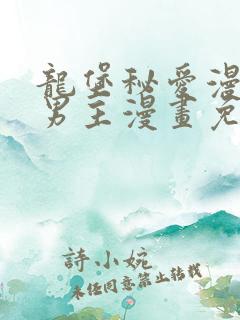 龍堡秘愛漫
男主漫畫免
詩小婉
未經同意禁止轉載